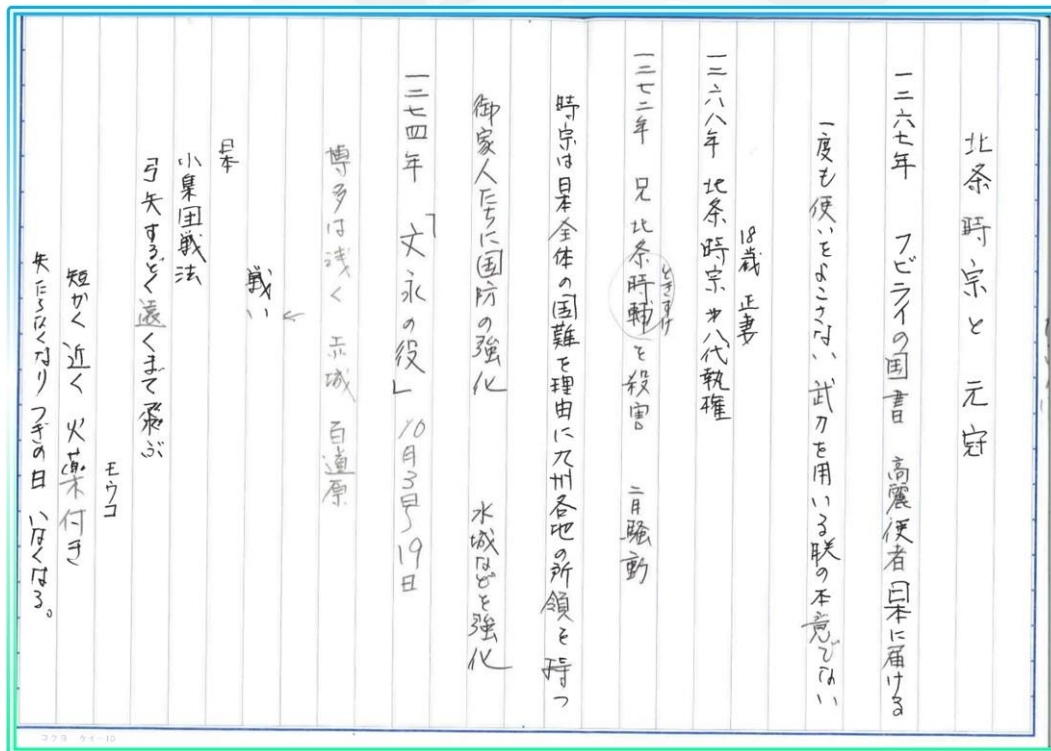 北条時宗と 元寇
一二六七年 フビライの国書 高麗使者 日本に届ける
一度も使いをよこさない 武力を用いる朕の本意でない
18歳 正妻
一二六八年 北条時宗 才八代執権
一二七二年 兄 北条時輔を殺害 二月騒動
ときすけ
時宗は日本全体の国難を理由に九州各地の所領を持つ
御家人たちに国防の強化 水城などを強化
一二七四年 「文永の役」 10月3日〜19日
博多は浅く 赤城 百道原
戦い ←
日本
小集団戦法
弓矢するどく遠くまで飛ぶ
モウコ
短かく 近く 火薬付き
矢たらなくなり つぎの日 いなくなる。
コクヨ ケイ-10